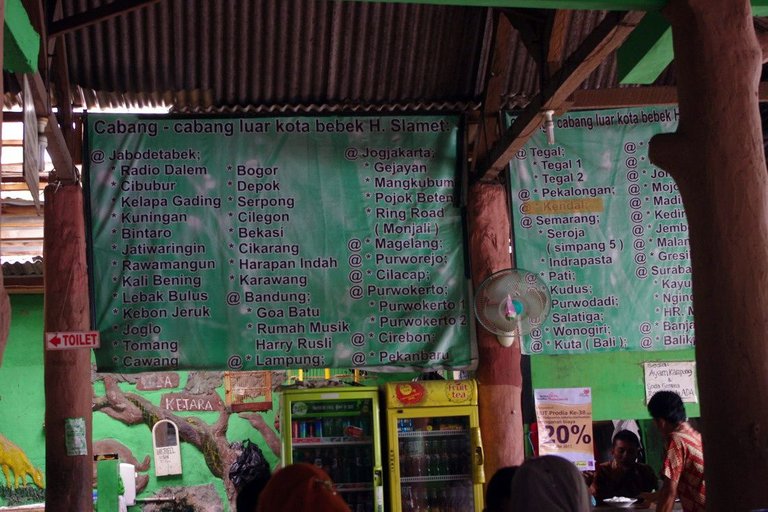 Cabang - cabang luar kota bebek H. Slamet:
@ Jabodetabek;
* Radio Dalem
* Cibubur
* Kelapa Gading
* Kuningan
* Bintaro
* Jatiwaringin
* Rawamangun
* Kali Bening
* Lebak Bulus
* Kebon Jeruk
* Joglo
* Tomang
* Cawang
* Bogor
* Depok
* Serpong
* Cilegon
* Bekasi
* Cikarang
* Harapan Indah
* Karawang
@ Bandung;
* Goa Batu
* Rumah Musik
Harry Rusli
@ Lampung;
@ Jogjakarta;
* Gejayan
* Mangkubum
* Pojok Beten
* Ring Road
( Monjali )
@ * Magelang;
@ * Purworejo;
@ * Cilacap;
@ Purwokerto;
* Purwokerto 1
* Purwokerto 2
@ * Cirebon;
@ * Pekanbaru
cabang luar kota bebek H.
@ Tegal;
* Tegal 1
* Tegal 2
@ * Pekalongan;
@ * Kendal;
@ Semarang;
* Seroja
( simpang 5 )
* Indrapasta
@ * Pati;
@ * Kudus;
* Purwodadi;
* Salatiga;
@ * Wonogiri;
@ * Kuta ( Bali );
@ *
* Jo
@ * Mojo
@ * Madi
@ * Kedir
@ * Jemb
@ * Malan
@ * Gresi
@ Suraba
* Kayu
* Ngin
* HR. M
@ * Banja
@ * Balik
TOILET
KEJARA
Fruit tea
Ayam Kampung
ADA
UT Prodia Ke-38
20%